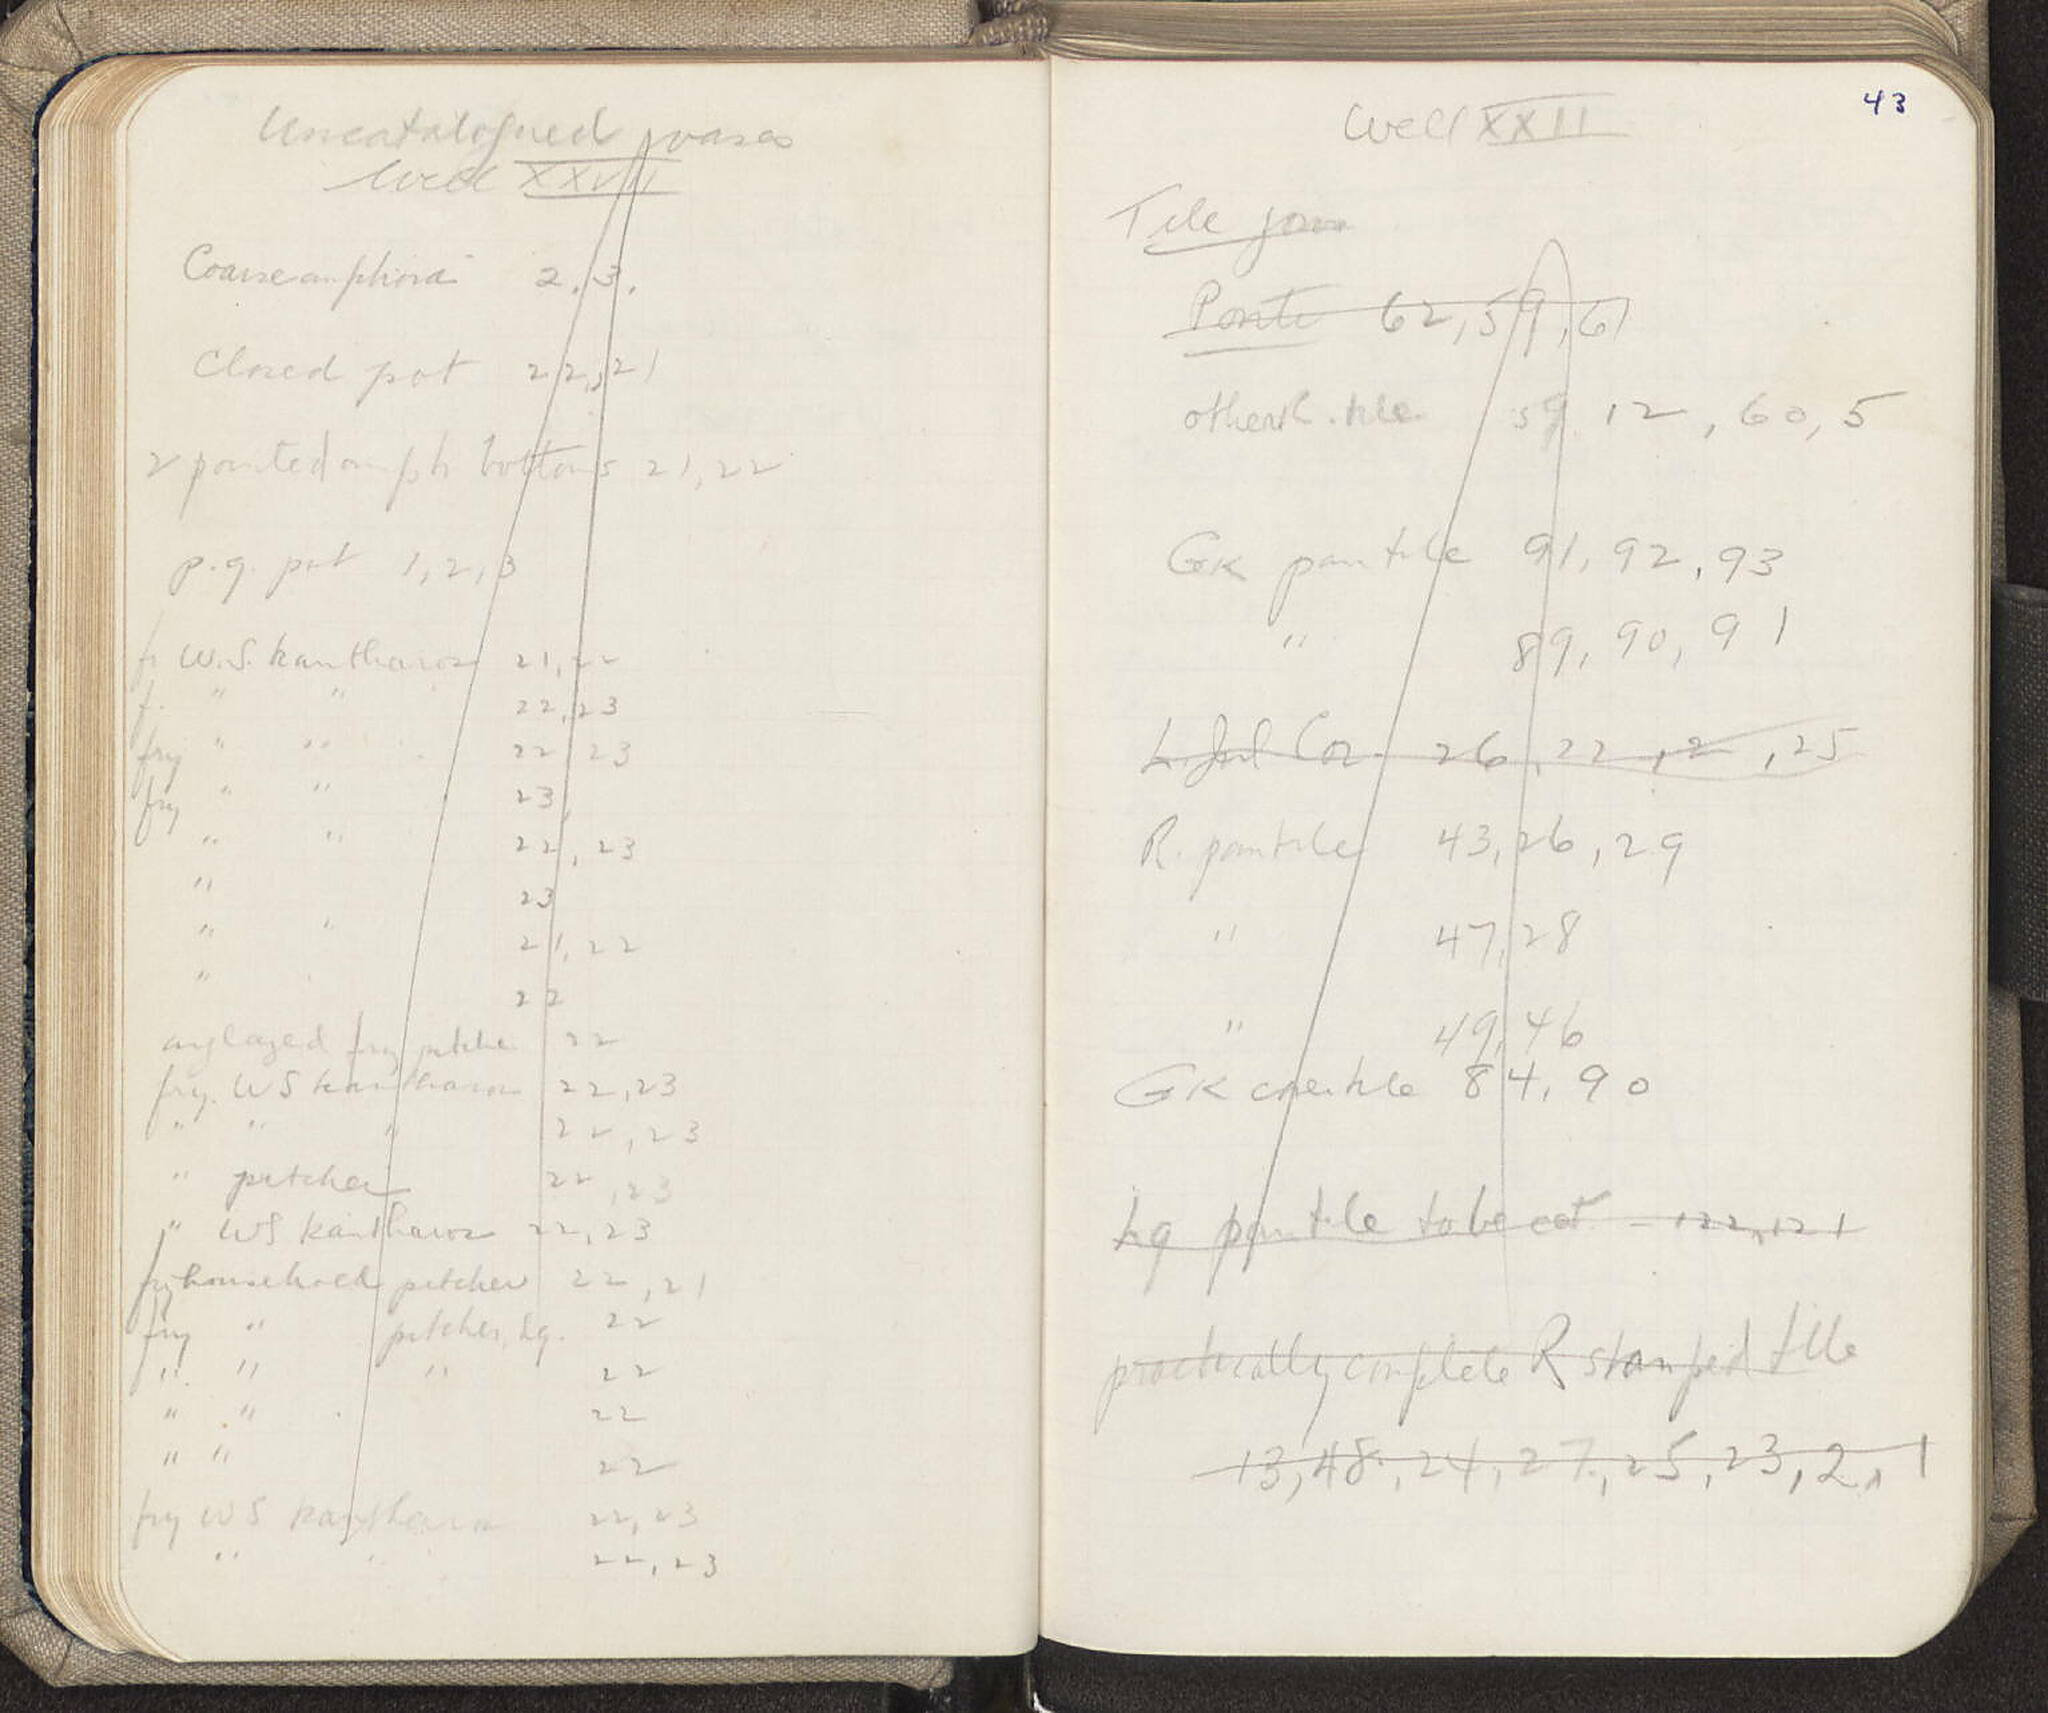 Uncatalogued vases
Well XXVII
Coarse amphora 2, 3.
Closed pot 22, 21
2 pointed amph bottoms 21, 22
p.g. pot 1, 2, 3
fr W.S. kantharos 21, 22
f. " " 22, 23
frg " " 22, 23
frg " " 23,
" " 22, 23
" 23
" " 21, 22
" 22
unglazed frg pitcher 22
frg. WS kantharos 22, 23
" " " 22, 23
" pitcher 22, 23
" WS kantharos 22, 23
frg household pitcher 22, 21
frg " pitcher, Lg. 22
" " " 22
" " 22
" " 22
frg WS kantharos 22, 23
" " 22, 23
43
Well XXII
Tile from
62, 59, 61
tile 59 12, 60, 5
GK pantile 91, 92, 93
" 89, 90, 91
26, 22, 2, 25
R. pantile 43, 26, 29
" 47, 28
" 49, 46
GK tile 84, 90
Lg pantile to be cat. - 122, 121
practically complete R stamped tile
13, 48, 24, 27, 25, 23, 2, 1